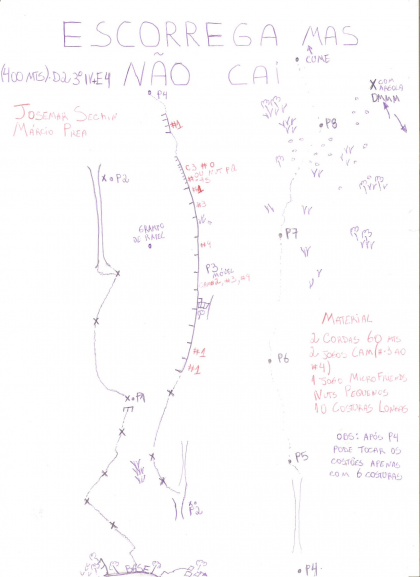 ESCORREGA MAS
NÃO CAI
(400 MTS) D2 3º IV E4
CUME
JOSEMAR SECHIN
MÁRCIO PREA
X COM
ARGOLA
DMMM
P4
#1
P8
C3 #0
#1
P2
#3
GRAMPO
DE RAPEL
P7
#4
P3
MÓVEL
#2, #3, #4
MATERIAL
2 CORDAS 60 MTS
2 JOGOS CAM (#.3 AO
#4)
1 JOGO MICROFRIENDS
NUTS PEQUENOS
10 COSTURAS LONGAS
#1
P6
#1
P1
OBS: APÓS P4
PODE TOCAR OS
COSTÕES APENAS
COM 6 COSTURAS
P5
P2
BASE
P4